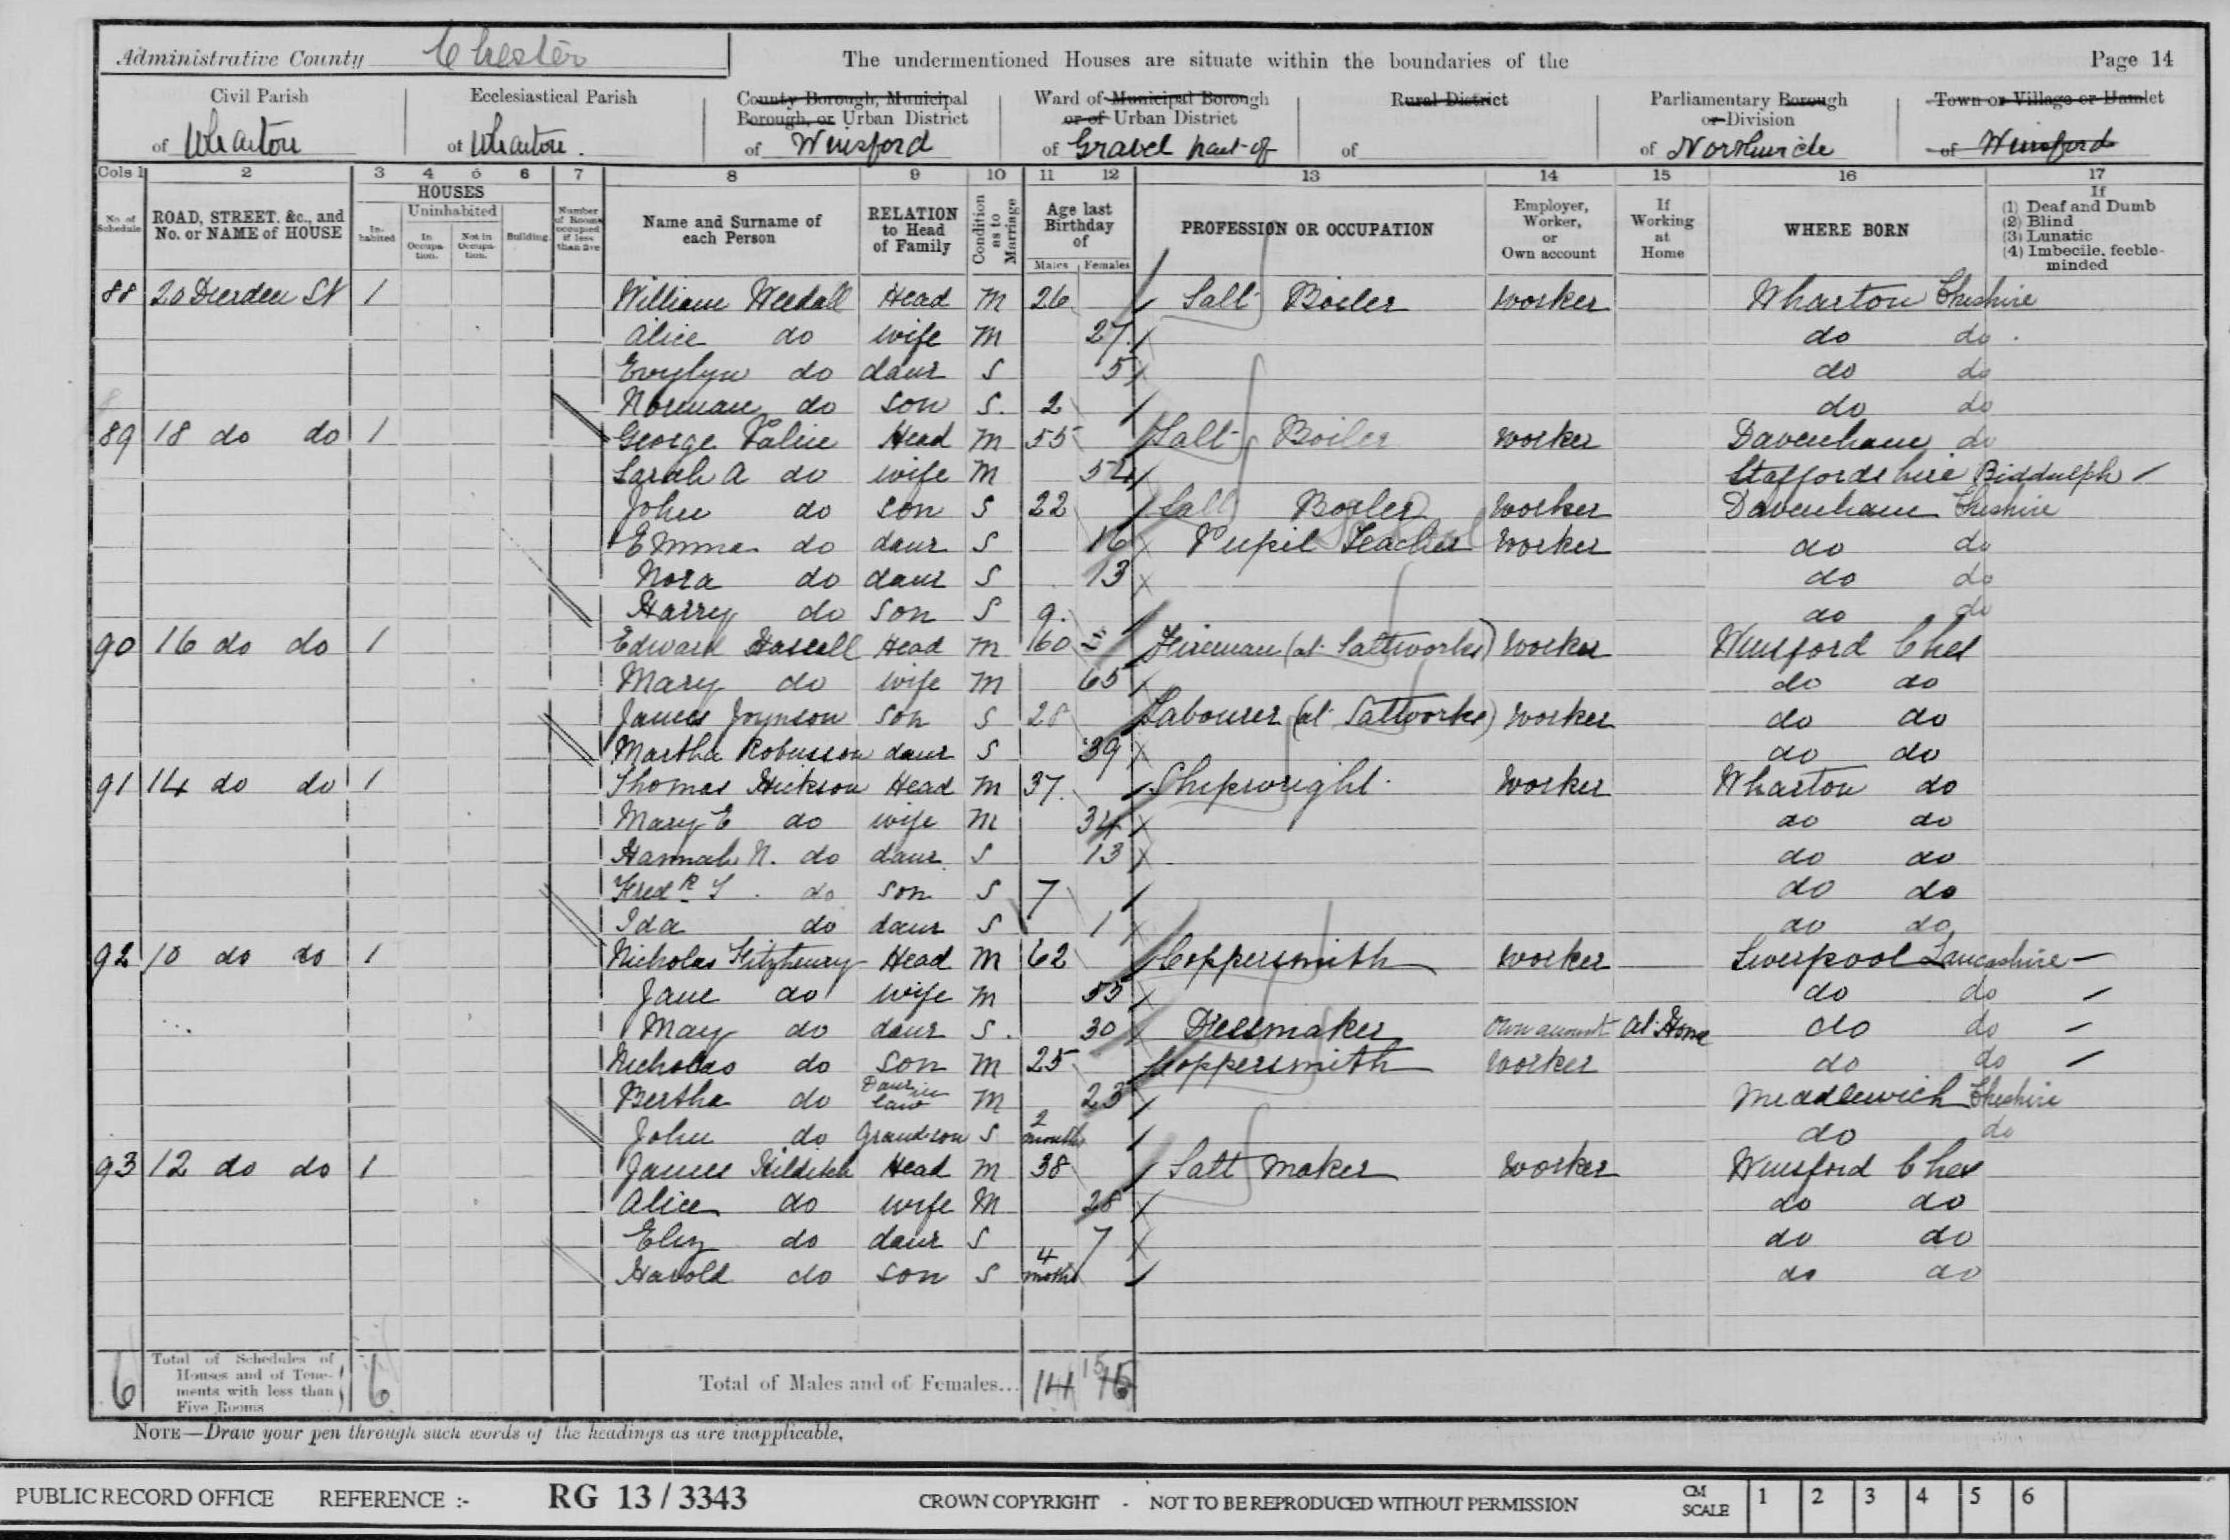 Administrative County Chester
The undermentioned Houses are situate within the boundaries of the
Page 14
Civil Parish of Wharton
Ecclesiastical Parish of Wharton.
County Borough, Municipal Borough, or Urban District of Winsford
Ward of Municipal Borough or of Urban District of Gravel part of
Rural District of
Parliamentary Borough or Division of Northwich
Town or Village or Hamlet of Winsford
Cols 1 2 3 4 5 6 7 8 9 10 11 12 13 14 15 16 17
No. of Schedule
ROAD, STREET, &c., and No. or NAME of HOUSE
HOUSES
Inhabited
Uninhabited
In Occupation.
Not in Occupation.
Building.
Number of Rooms occupied if less than five
Name and Surname of each Person
RELATION to Head of Family
Condition as to Marriage
Age last Birthday of
Males Females
PROFESSION OR OCCUPATION
Employer, Worker, or Own account
If Working at Home
WHERE BORN
If
(1) Deaf and Dumb
(2) Blind
(3) Lunatic
(4) Imbecile, feeble-minded
88 20 St 1 William Weedall Head M 26 Salt Boiler Worker Wharton Cheshire
Alice do wife M 27 do do
Evylyn do daur S 5 do do
Norman do son S. 2 do do
89 18 do do 1 George Head M 55 Salt Boiler Worker Davenham do
Sarah A do wife M 54 Staffordshire Biddulph
John do son S 22 Salt Boiler Worker Davenham Cheshire
Emma do daur S 16 Pupil Teacher Worker do do
Nora do daur S 13 do do
Harry do son S 9. do do
90 16 do do 1 Edward Hascall Head M 60 Fireman (at Saltworks) Worker Winsford Ches
Mary do wife M 65 do do
James Joynson son S 28 Labourer (at Saltworks) Worker do do
Martha Robinson daur S 39 do do
91 14 do do 1 Thomas Hickson Head M 37. Shipwright. Worker Wharton do
Mary E do wife M 34 do do
Hannah N. do daur S 13 do do
Fredk T. do son S 7 do do
Ida do daur S 1 do do
92 10 do do 1 Nicholas Fitzhenry Head M 62 Coppersmith Worker Liverpool Lancashire
Jane do wife M 55 do do
May do daur S. 30 Dressmaker Own account At Home do do
Nicholas do son M 25 Coppersmith Worker do do
Bertha do Daur in law M 23 Middlewich Cheshire
John do Grandson S 2 months do do
93 12 do do 1 James Hilditch Head M 38 Salt Maker Worker Winsford Ches
Alice do wife M 28 do do
Eliz do daur S 7 do do
Harold do son S 4 moths do do
6 Total of Schedules of Houses and of Tenements with less than Five Rooms 6
Total of Males and of Females... 14 15
NOTE—Draw your pen through such words of the headings as are inapplicable.
PUBLIC RECORD OFFICE REFERENCE :- RG 13 / 3343
CROWN COPYRIGHT - NOT TO BE REPRODUCED WITHOUT PERMISSION
CM SCALE 1 2 3 4 5 6